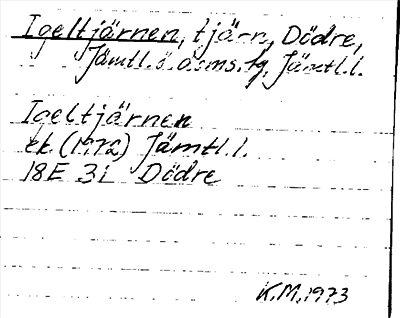 Igeltjärnen, tjärn, Dödre,
Jämtl.ö.dsms.tg, Jämtl.l.
Igeltjärnen
ek. (1972) Jämtl.l.
18E 3i Dödre
K.M. 1973